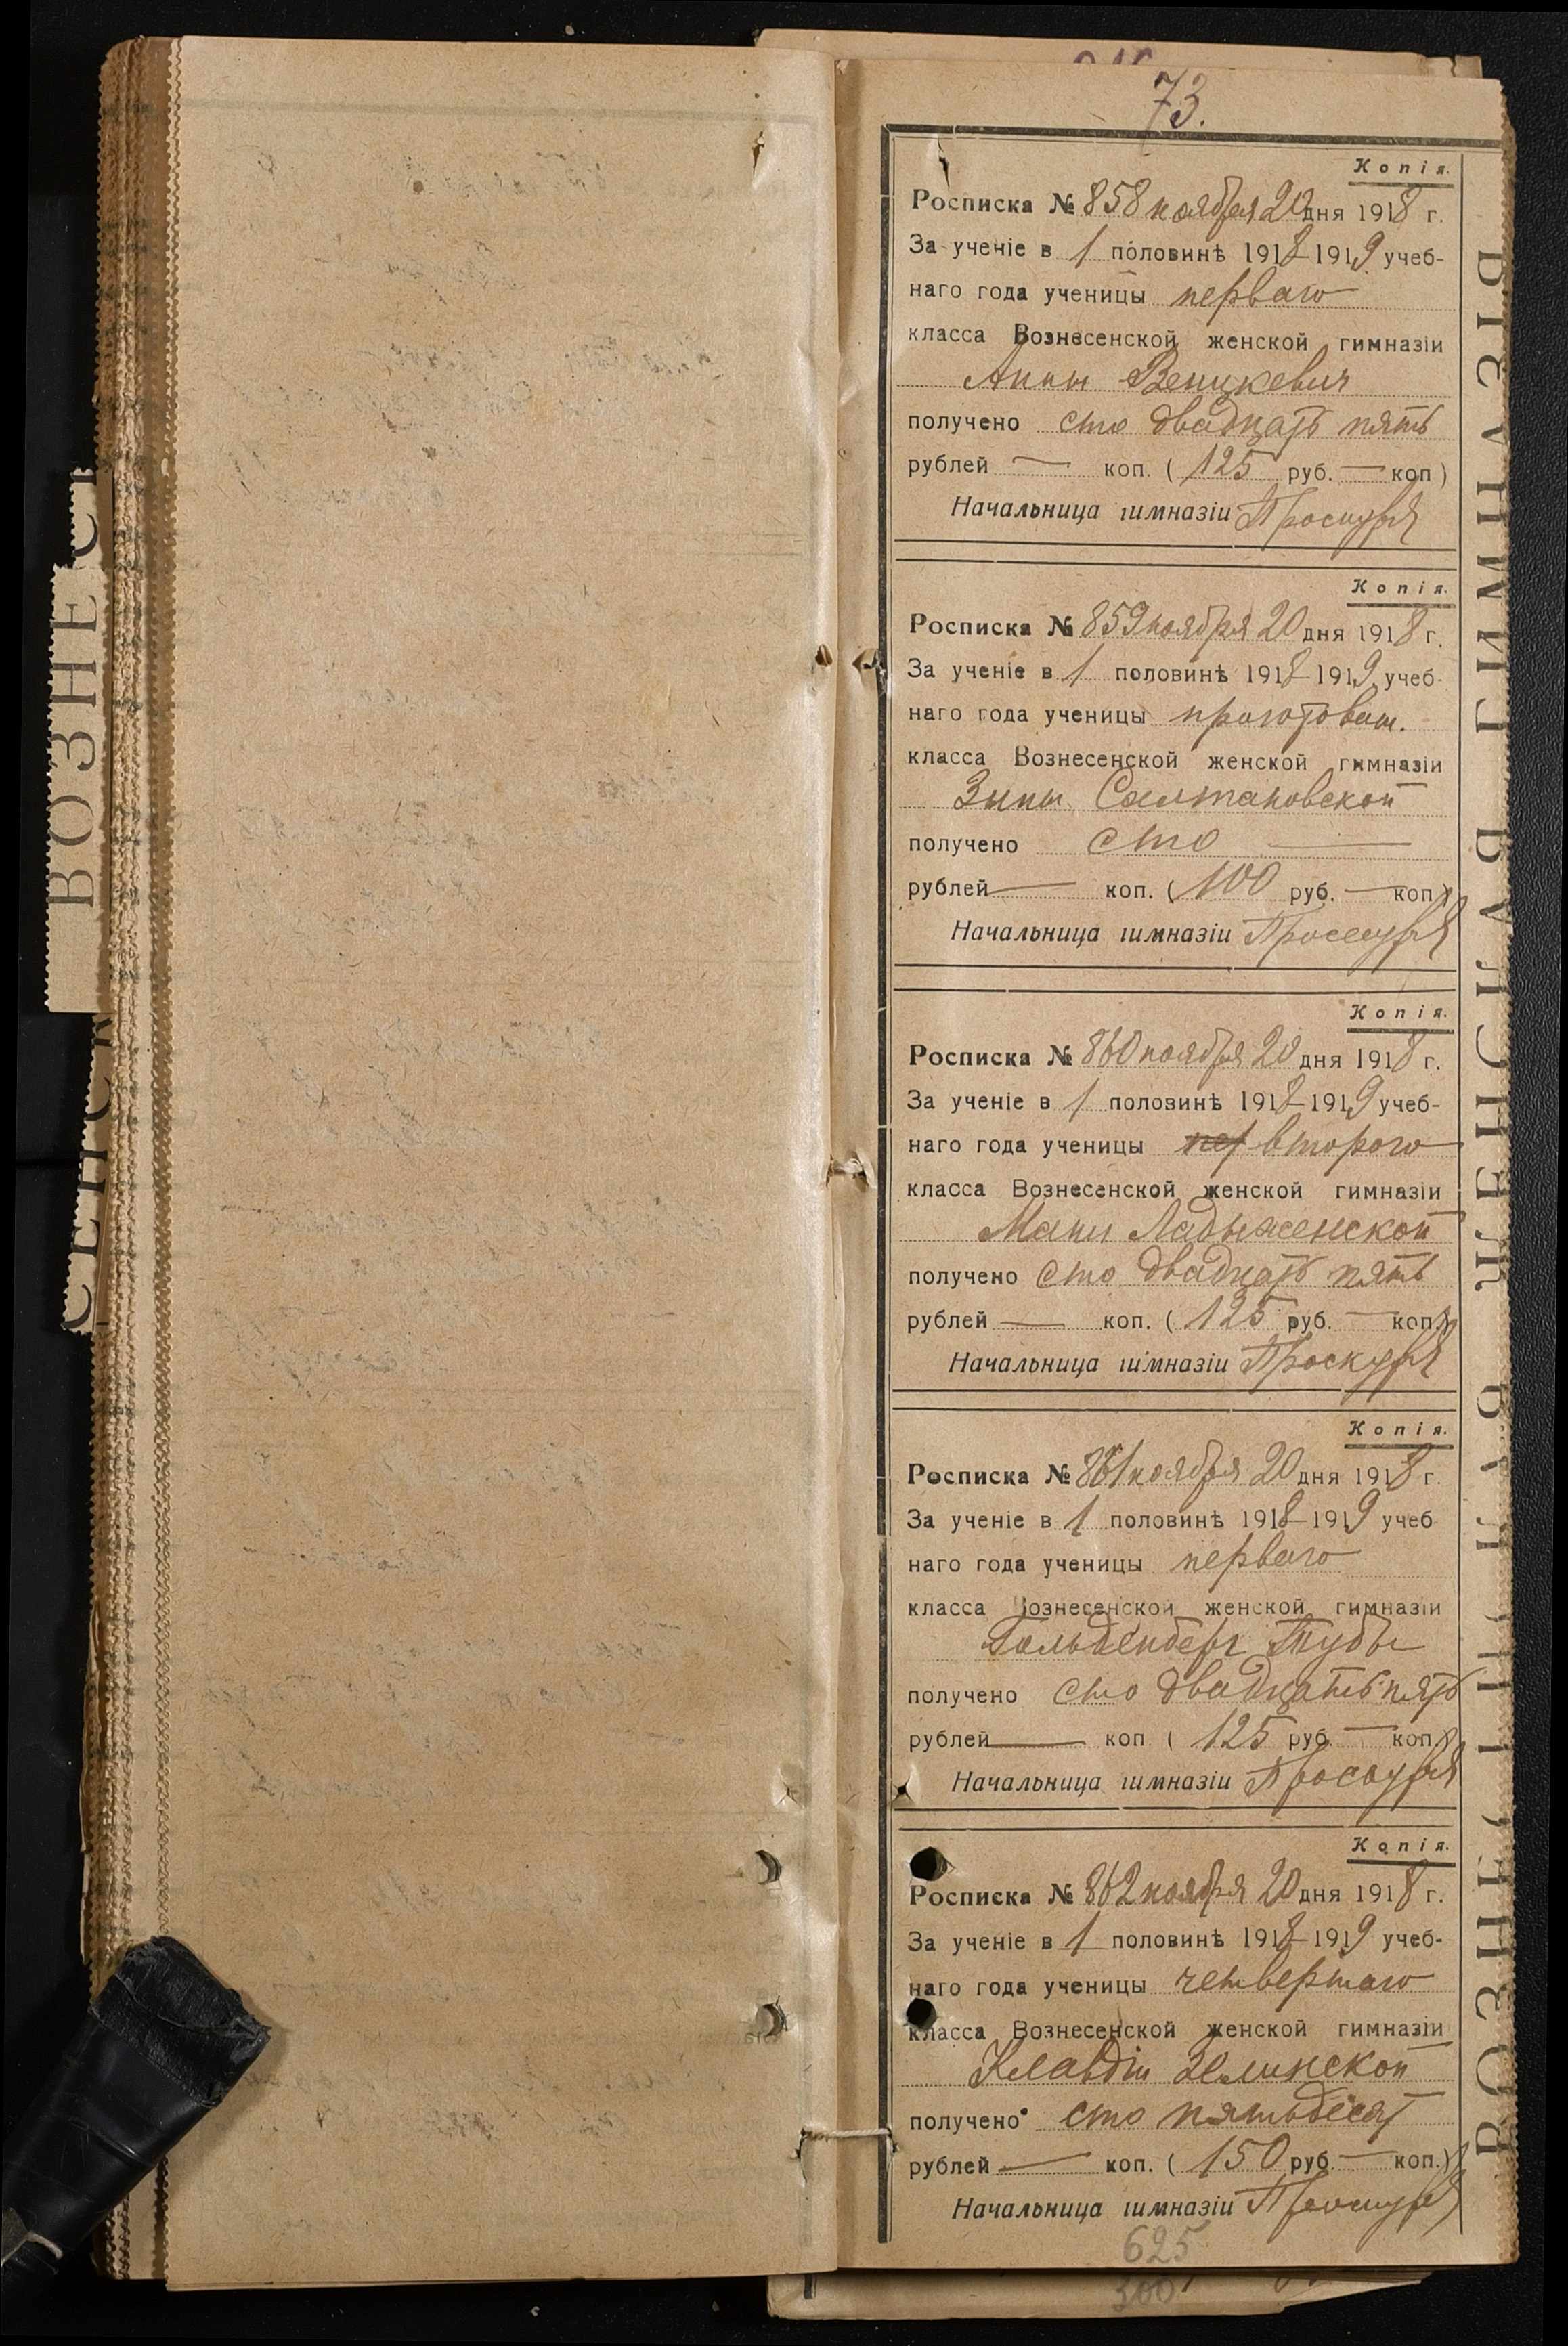 73.
Копія.
Росписка № 858 ноября 20 дня 1918 г.
За ученіе в 1 половинѣ 1918-1919 учеб-
наго года ученицы перваго
класса Вознесенской женской гимназіи
Анны Веницкевич
получено сто двадцать пять
рублей — коп. (125 руб. — коп)
Начальница гимназіи
Копія.
Росписка № 859 ноября 20 дня 1918 г.
За ученіе в 1 половинѣ 1918-1919 учеб-
наго года ученицы приготовит.
класса Вознесенской женской гимназіи
Зины Салтановской
получено сто —
рублей — коп. (100 руб. — коп)
Начальница гимназіи
Копія.
Росписка № 860 ноября 20 дня 1918 г.
За ученіе в 1 половинѣ 1918-1919 учеб-
наго года ученицы второго
класса Вознесенской женской гимназіи
Мани Ладыженской
получено сто двадцать пять
рублей — коп. (125 руб. — коп.)
Начальница гимназіи
Копія.
Росписка № 861 ноября 20 дня 1918 г.
За ученіе в 1 половинѣ 1918-1919 учеб
наго года ученицы перваго
класса Вознесенской женской гимназіи
Гольденберг Тубы
получено сто двадцать пять
рублей — коп (125 руб. — коп.)
Начальница гимназіи
Копія.
Росписка № 862 ноября 20 дня 1918 г.
За ученіе в 1 половинѣ 1918-1919 учеб-
наго года ученицы четвертаго
класса Вознесенской женской гимназіи
Клавдіи Зелинской
получено сто пятьдесят
рублей — коп. (150 руб. — коп.)
Начальница гимназіи
625
300
ВОЗНЕ